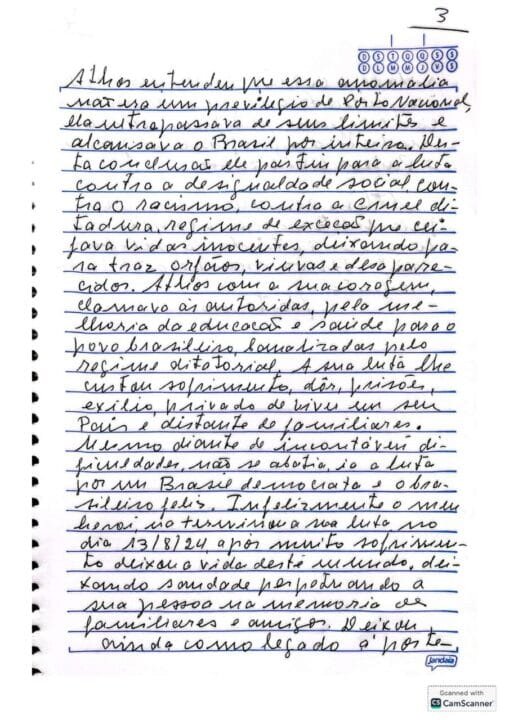 3
D S T Q Q S S
D L M M J V S
Athos entendeu que essa anomalia
não era um previlégio de Porto Nacional,
ela ultrapassava de seus limites e
alcansava o Brasil por inteiro. Des-
ta conclusão ele partiu para a luta
contra a desigualdade social con-
tra o racismo, contra a cruel di-
tadura, regime de exceção que cei-
fava vidas inocentes, deixando pa-
ra traz orfãos, viuvas e desapare-
cidos. Athos com a sua coragem,
clamava às autoridas, pela me-
lhoria da educação e saúde para o
povo brasileiro, banalizadas pelo
regime ditatorial. A sua luta lhe
custou sofrimento, dôr, prisões,
exilio, privado de viver em seu
País e distante de familiares.
Mesmo diante de incontáveis di-
ficuldades, não se abatia, ia a luta
por um Brasil democrata e o bra-
sileiro felis. Infelizmente o meu
heroi, terminou a sua luta no
dia 13/8/24, após muito sofrimen-
to deixou a vida deste mundo, dei-
xando saudade perpetuando a
sua pessoa na memoria de
familiares e amigos. Deixou
ainda como legado à poste-
jandaia
Scanned with
CS CamScanner